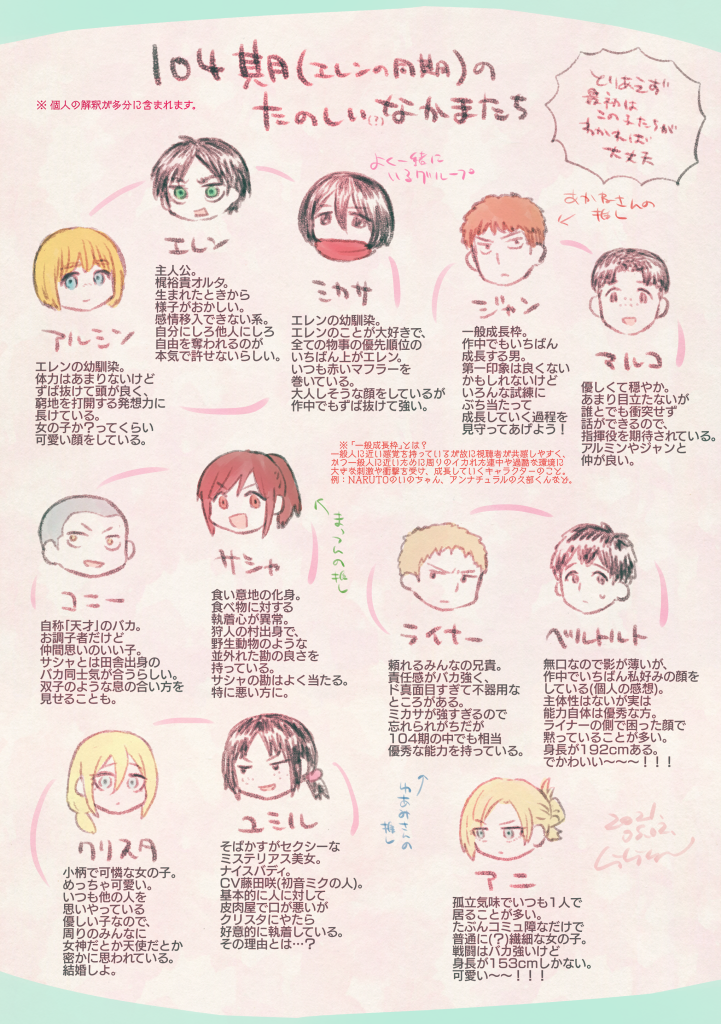 104期(エレンの同期)の
たのしい(?)なかまたち
※ 個人の解釈が多分に含まれます。
とりあえず
最初は
この子たちが
わかれば
大丈夫
よく一緒に
いるグループ
エレン
主人公。
梶裕貴オルタ。
生まれたときから
様子がおかしい。
感情移入できない系。
自分にしろ他人にしろ
自由を奪われるのが
本気で許せないらしい。
ミカサ
エレンの幼馴染。
エレンのことが大好きで、
全ての物事の優先順位の
いちばん上がエレン。
いつも赤いマフラーを
巻いている。
大人しそうな顔をしているが
作中でもずば抜けて強い。
アルミン
エレンの幼馴染。
体力はあまりないけど
ずば抜けて頭が良く、
窮地を打開する発想力に
長けている。
女の子か?ってくらい
可愛い顔をしている。
の推し
ジャン
一般成長枠。
作中でもいちばん
成長する男。
第一印象は良くない
かもしれないけど
いろんな試練に
ぶち当たって
成長していく過程を
見守ってあげよう!
マルコ
優しくて穏やか。
あまり目立たないが
誰とでも衝突せず
話ができるので、
指揮役を期待されている。
アルミンやジャンと
仲が良い。
※「一般成長枠」とは?
一般人に近い感覚を持っているが故に視聴者が共感しやすく、
かつ一般人に近いために周りのイカれた連中や過酷な環境に
大きな刺激や衝撃を受け、成長していくキャラクターのこと。
例:NARUTOのいのちゃん、アンナチュラルの久部くんなど。
コニー
自称「天才」のバカ。
お調子者だけど
仲間思いのいい子。
サシャとは田舎出身の
バカ同士気が合うらしい。
双子のような息の合い方を
見せることも。
サシャ
食い意地の化身。
食べ物に対する
執着心が異常。
狩人の村出身で、
野生動物のような
並外れた勘の良さを
持っている。
サシャの勘はよく当たる。
特に悪い方に。
の推し
ライナー
頼れるみんなの兄貴。
責任感がバカ強く、
ド真面目すぎて不器用な
ところがある。
ミカサが強すぎるので
忘れられがちだが
104期の中でも相当
優秀な能力を持っている。
ベルトルト
無口なので影が薄いが、
作中でいちばん私好みの顔を
している(個人の感想)。
主体性はないが実は
能力自体は優秀な方。
ライナーの側で困った顔で
黙っていることが多い。
身長が192cmある。
でかわいい〜〜〜!!!
の推し
クリスタ
小柄で可憐な女の子。
めっちゃ可愛い。
いつも他の人を
思いやっている
優しい子なので、
周りのみんなに
女神だとか天使だとか
密かに思われている。
結婚しよ。
ユミル
そばかすがセクシーな
ミステリアス美女。
ナイスバディ。
CV藤田咲(初音ミクの人)。
基本的に人に対して
皮肉屋で口が悪いが
クリスタにやたら
好意的に執着している。
その理由とは…?
アニ
孤立気味でいつも1人で
居ることが多い。
たぶんコミュ障なだけで
普通に(?)繊細な女の子。
戦闘はバカ強いけど
身長が153cmしかない。
可愛い〜〜!!!
2021.
05.02.